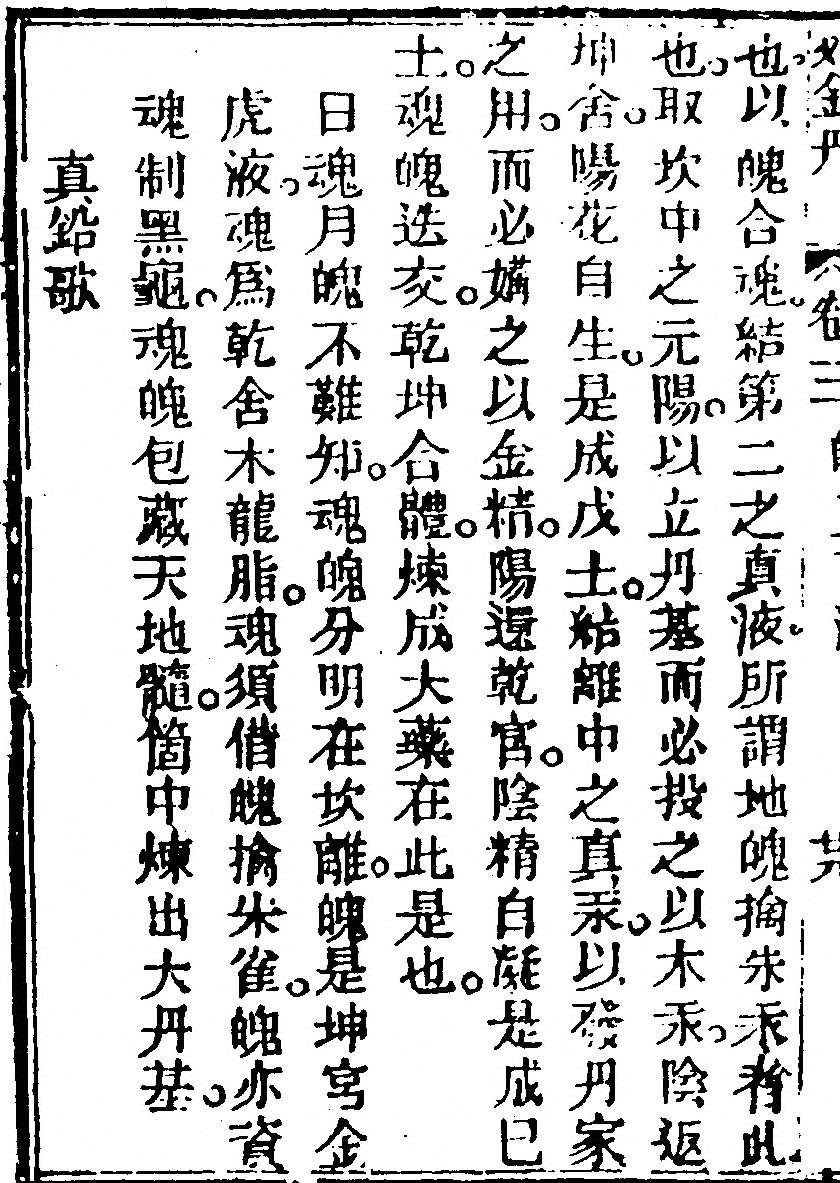 金丹 卷三
也以魄合魂結第二之真液所謂地魄擒朱汞者此
也取坎中之元陽以立丹基而必投之以木汞陰返
坤舍陽花自生是成戊土結離中之真汞以發丹家
之用而必媾之以金精陽還乾宮陰精自凝是成巳
土魂魄迭交乾坤合體煉成大藥在此是也
日魂月魄不難知魂魄分明在坎離魄是坤宮金
虎液魂爲乾舍木龍脂魂須借魄擒朱雀魄亦資
魂制黑龜魂魄包藏天地髓箇中煉出大丹基
真鉛歌